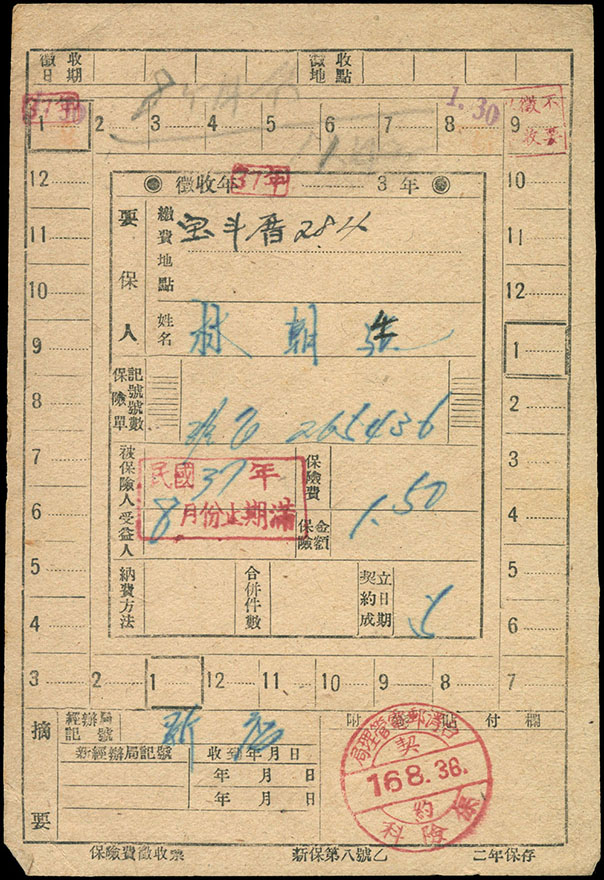 徵收日期
徵收地點
37年
1 2 3 4 5 6 7 8 9
1.30
不要徵收
12
11
10
9
8
7
6
5
4
3 2 1 12 11 10 9 8 7
10
11
12
1
2
3
4
5
6
徵收年 37年 3年
要保人
繳費地點
宝斗厝284
姓名
林朝
保險單記號號數
265436
被保險人
受益人
民國37年
8月份止期滿
保險費
1.50
保險金額
納費方法
合併件數
契約成立日期
摘要
經辦局記號
新經辦局記號
收到年月日
年 月 日
年 月 日
附箋貼付欄
台灣郵電管理局
契約
16 8. 36.
保險科
保險費徵收票
新保第八號乙
二年保存